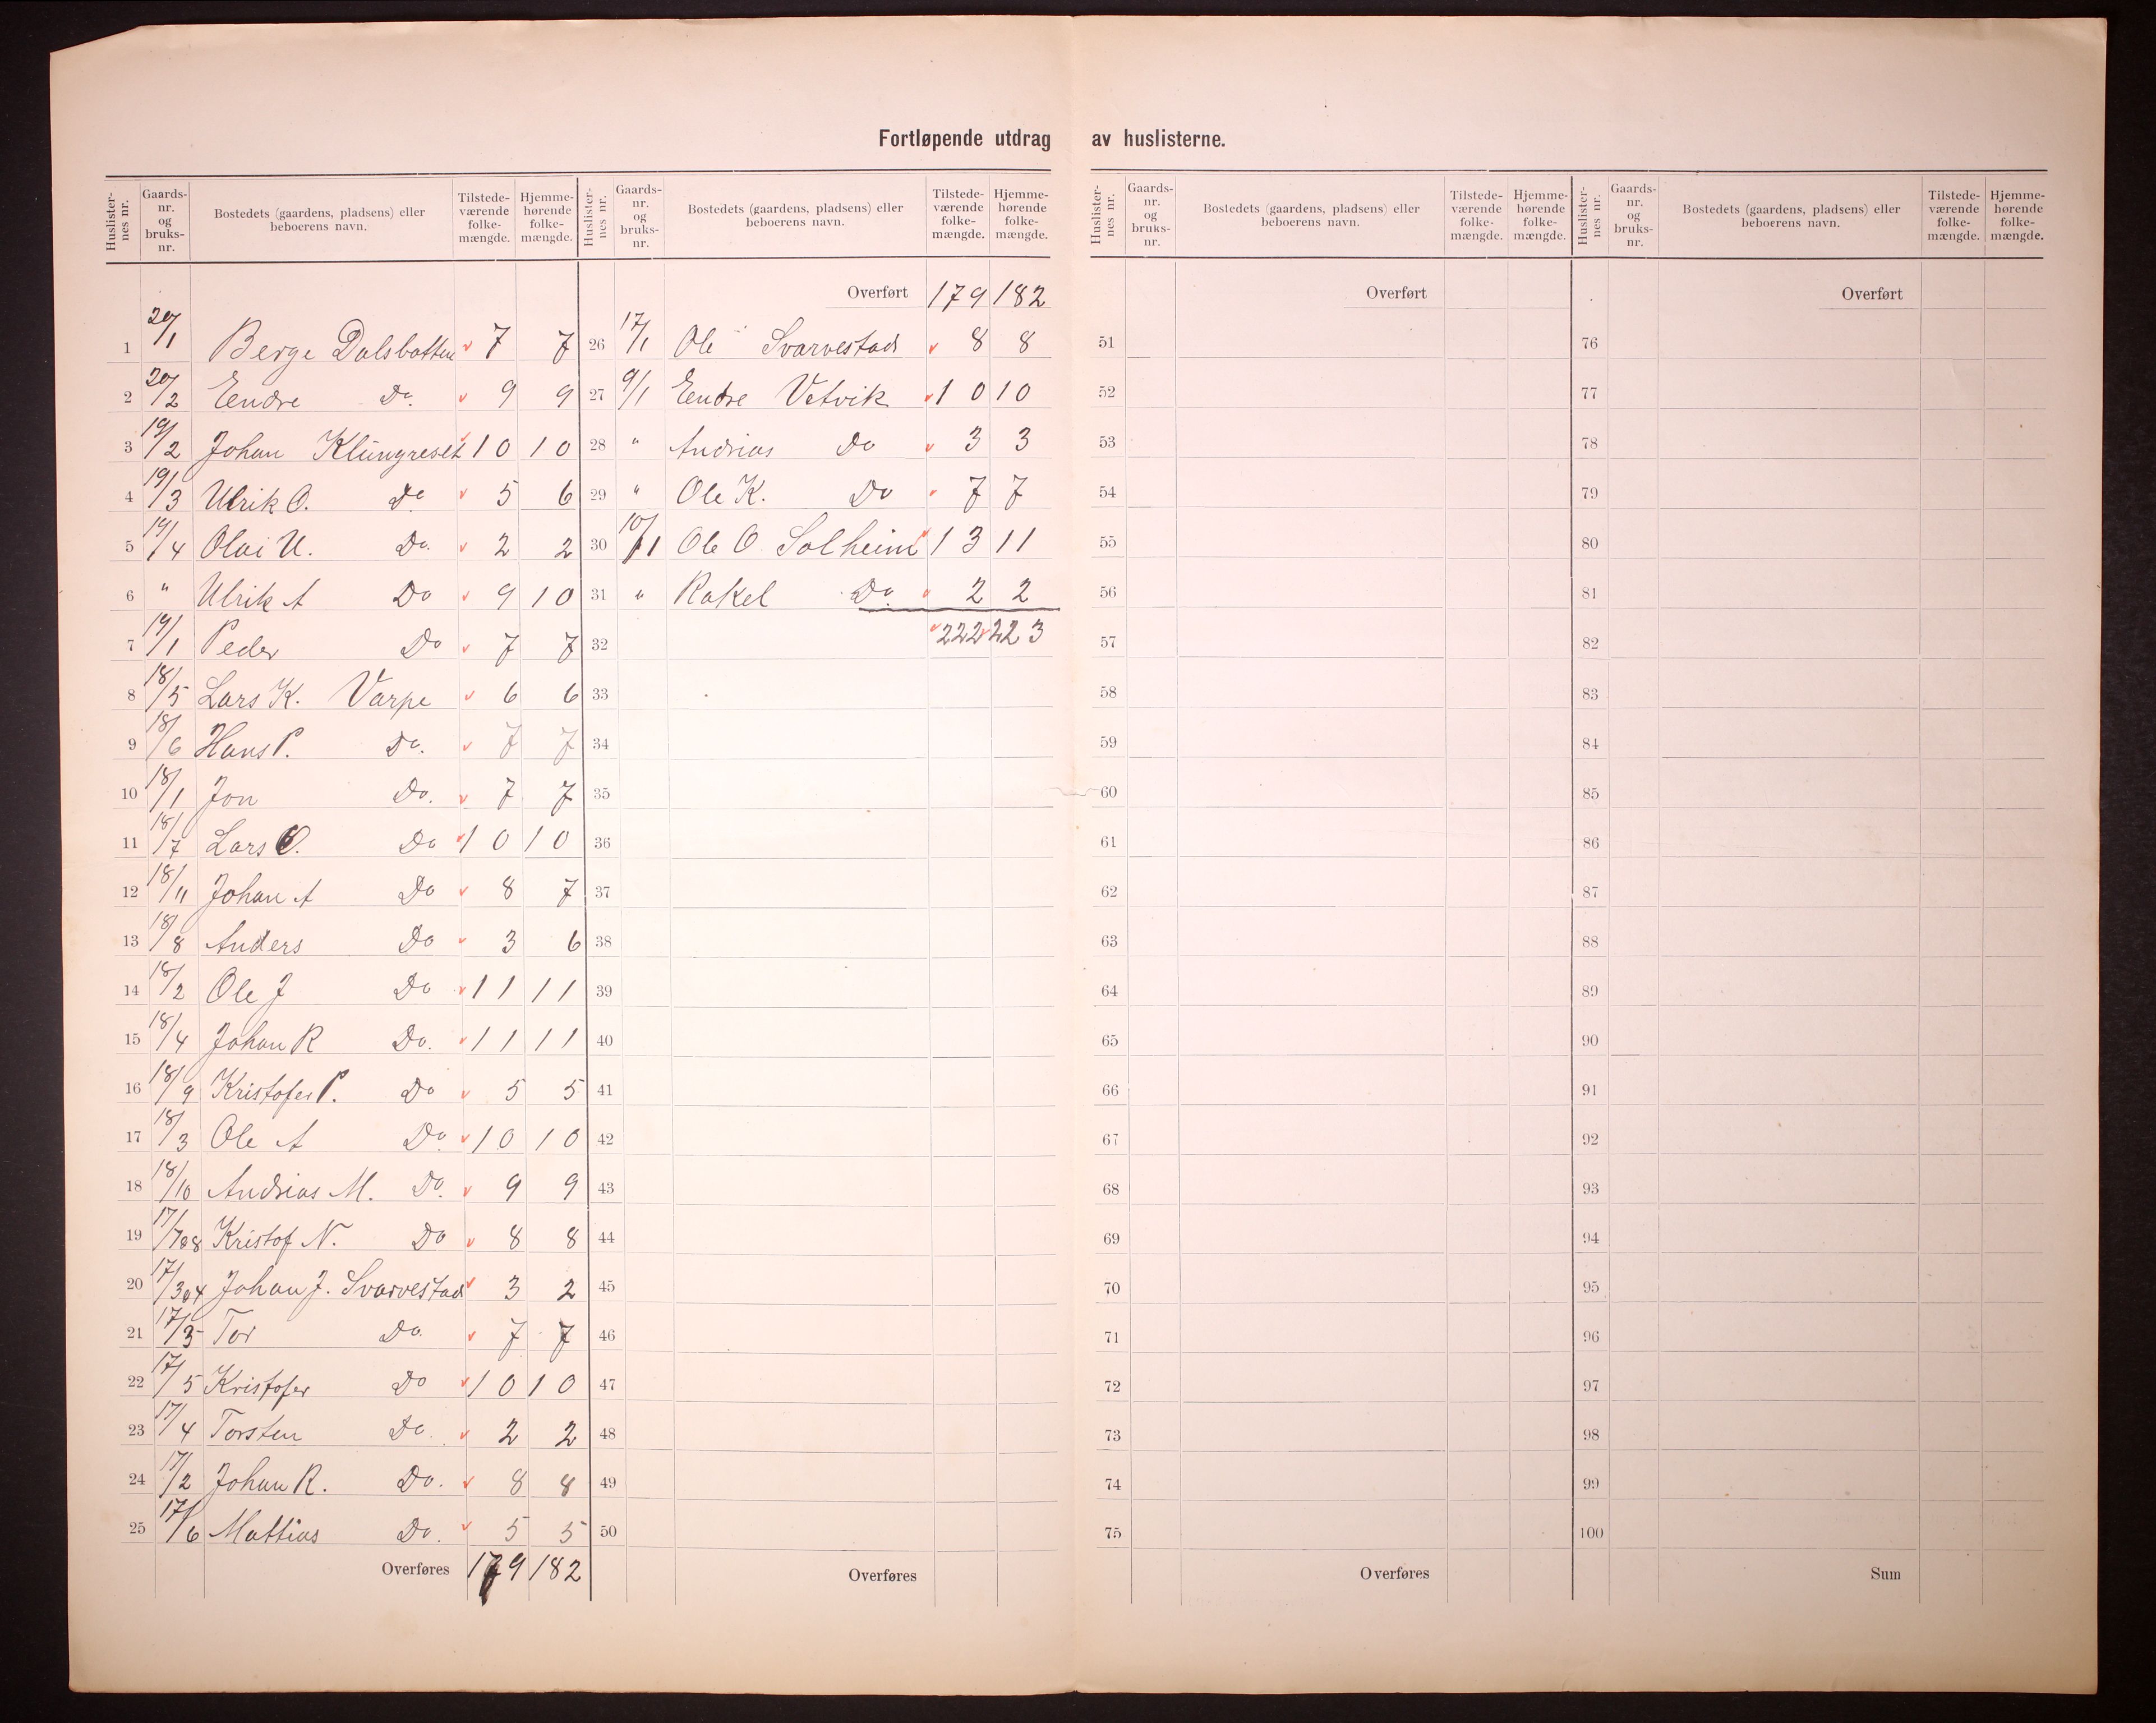 Fortløpende utdrag av huslisterne.
Huslisternes nr. Gaards-nr. og bruks-nr. Bostedets (gaardens, pladsens) eller beboerens navn. Tilstede-værende folke-mængde. Hjemme-hørende folke-mængde.
1 20/1 Berge Dalsbotten 7 7
2 20/2 Eendre Do. 9 9
3 19/2 Johan Klüngreset 10 10
4 19/3 Ulrik O. Do 5 6
5 19/4 Olai U. Do. 2 2
6 " Ulrik A Do 9 10
7 19/1 Peder Do 7 7
8 18/5 Lars K. Varpe 6 6
9 18/6 Hans P. Do. 7 7
10 18/1 Jon Do. 7 7
11 18/7 Lars O. Do 10 10
12 18/11 Johan A Do 8 7
13 18/8 Anders Do 3 6
14 18/2 Ole J Do 11 11
15 18/4 Johan R Do. 11 11
16 18/9 Kristofer P. Do 5 5
17 18/3 Ole A Do. 10 10
18 18/10 Andrias M. Do. 9 9
19 17/7o8 Kristof N. Do 8 8
20 17/3o4 Johan J. Svarvestad 3 2
21 17/3 Tor Do. 7 7
22 17/5 Kristofer Do 10 10
23 17/4 Torsten Do. 2 2
24 17/2 Johan R. Do. 8 8
25 17/6 Mattias Do. 5 5
Overføres 179 182
Huslisternes nr. Gaards-nr. og bruks-nr. Bostedets (gaardens, pladsens) eller beboerens navn. Tilstede-værende folke-mængde. Hjemme-hørende folke-mængde.
Overført 179 182
26 17/1 Ole Svarvestad 8 8
27 9/1 Eendre Vetvik 10 10
28 " Andrias Do 3 3
29 " Ole K. Do 7 7
30 10/1 Ole O Solheim 13 11
31 " Rakel Do. 2 2
32 222 223
33
34
35
36
37
38
39
40
41
42
43
44
45
46
47
48
49
50
Overføres
Huslisternes nr. Gaards-nr. og bruks-nr. Bostedets (gaardens, pladsens) eller beboerens navn. Tilstede-værende folke-mængde. Hjemme-hørende folke-mængde.
Overført
51
52
53
54
55
56
57
58
59
60
61
62
63
64
65
66
67
68
69
70
71
72
73
74
75
Overføres
Huslisternes nr. Gaards-nr. og bruks-nr. Bostedets (gaardens, pladsens) eller beboerens navn. Tilstede-værende folke-mængde. Hjemme-hørende folke-mængde.
Overført
76
77
78
79
80
81
82
83
84
85
86
87
88
89
90
91
92
93
94
95
96
97
98
99
100
Sum